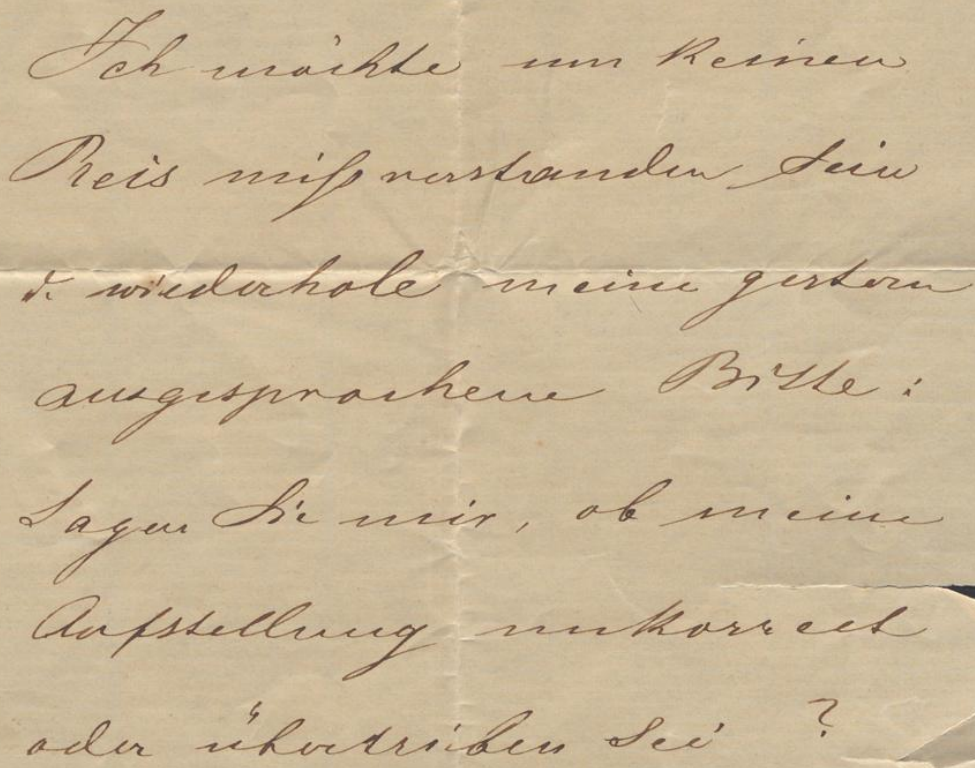 Ich möchte um keinen
Preis mißverstanden sein
u. wiederhole meine gestern
ausgesprochene Bitte:
Sagen Sie mir, ob meine
Aufstellung unkorrect
oder übertrieben sei?